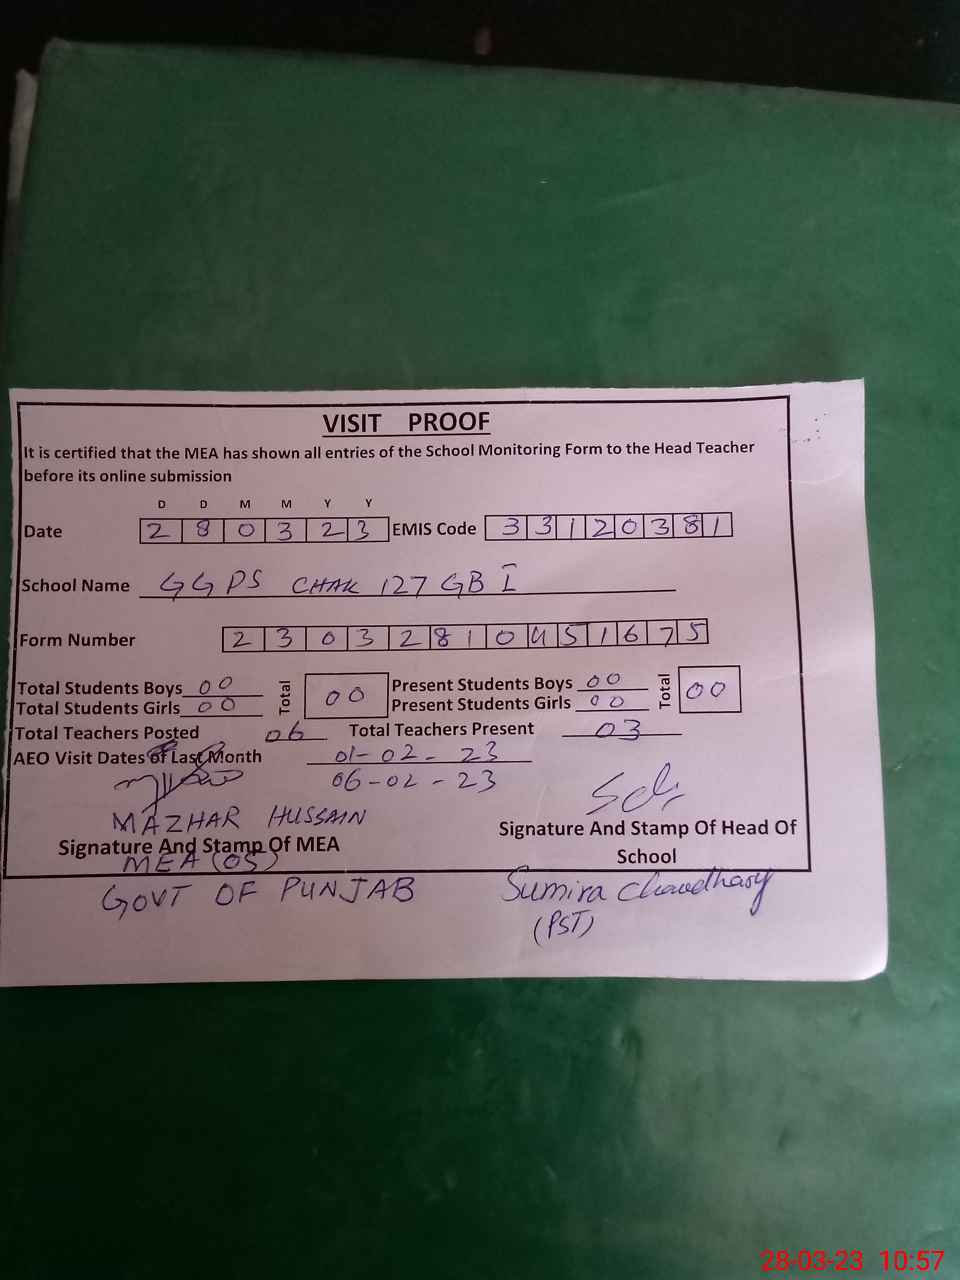 VISIT PROOF
It is certified that the MEA has shown all entries of the School Monitoring Form to the Head Teacher
before its online submission
D D M M Y Y
Date 2 8 0 3 2 3 EMIS Code 3 3 1 2 0 3 8 1
School Name GGPS CHAK 127 GB I
Form Number 2 3 0 3 2 8 1 0 4 5 1 6 7 5
Total Students Boys 00 Total 00 Present Students Boys 00 Total 00
Total Students Girls 00 Present Students Girls 00
Total Teachers Posted 06 Total Teachers Present 03
AEO Visit Dates of Last Month 01-02-23
06-02-23
MAZHAR HUSSAIN
Signature And Stamp Of MEA Signature And Stamp Of Head Of
School
MEA (OS)
GOVT OF PUNJAB Sumira Chaudhary
(PST)
28-03-23 10:57